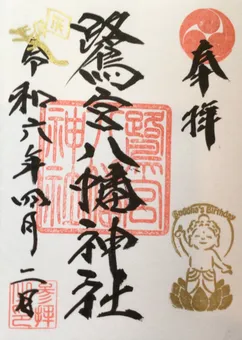 奉拝
Buddha's Birthday
鷺宮八幡神社
鷺宮八幡神社
令和六年四月二日
参拝